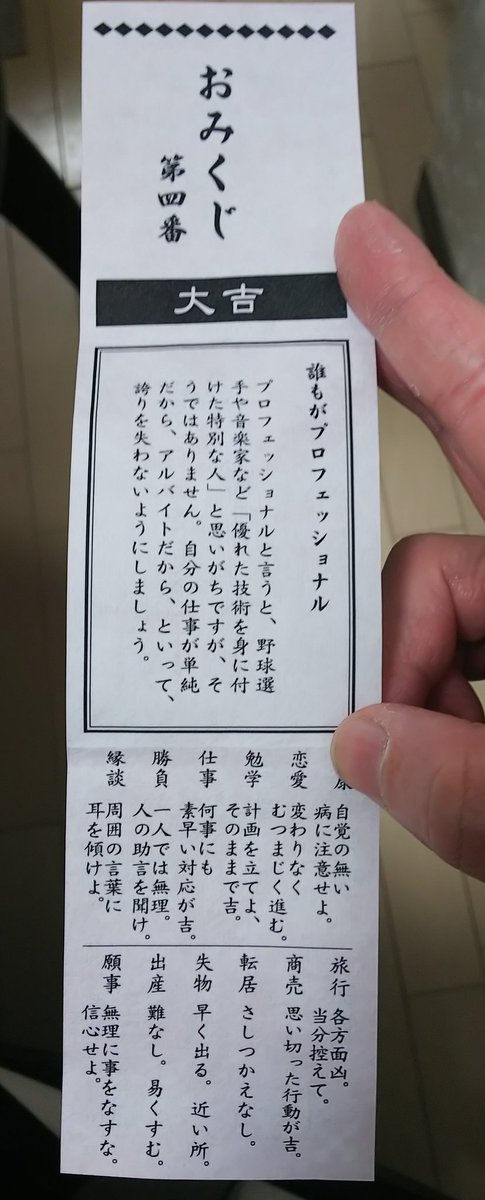 おみくじ
第四番
大吉
誰もがプロフェッショナル
プロフェッショナルと言うと、野球選
手や音楽家など「優れた技術を身に付
けた特別な人」と思いがちですが、そ
うではありません。自分の仕事が単純
だから、アルバイトだから、といって、
誇りを失わないようにしましょう。
康
自覚の無い
病に注意せよ。
恋愛
変わりなく
むつまじく進む。
勉学
計画を立てよ、
そのままで吉。
仕事
何事にも
素早い対応が吉。
勝負
一人では無理。
人の助言を聞け。
縁談
周囲の言葉に
耳を傾けよ。
旅行
各方面凶。
当分控えて。
商売
思い切った行動が吉。
転居
さしつかえなし。
失物
早く出る。近い所。
出産
難なし。易くすむ。
願事
無理に事をなすな。
信心せよ。